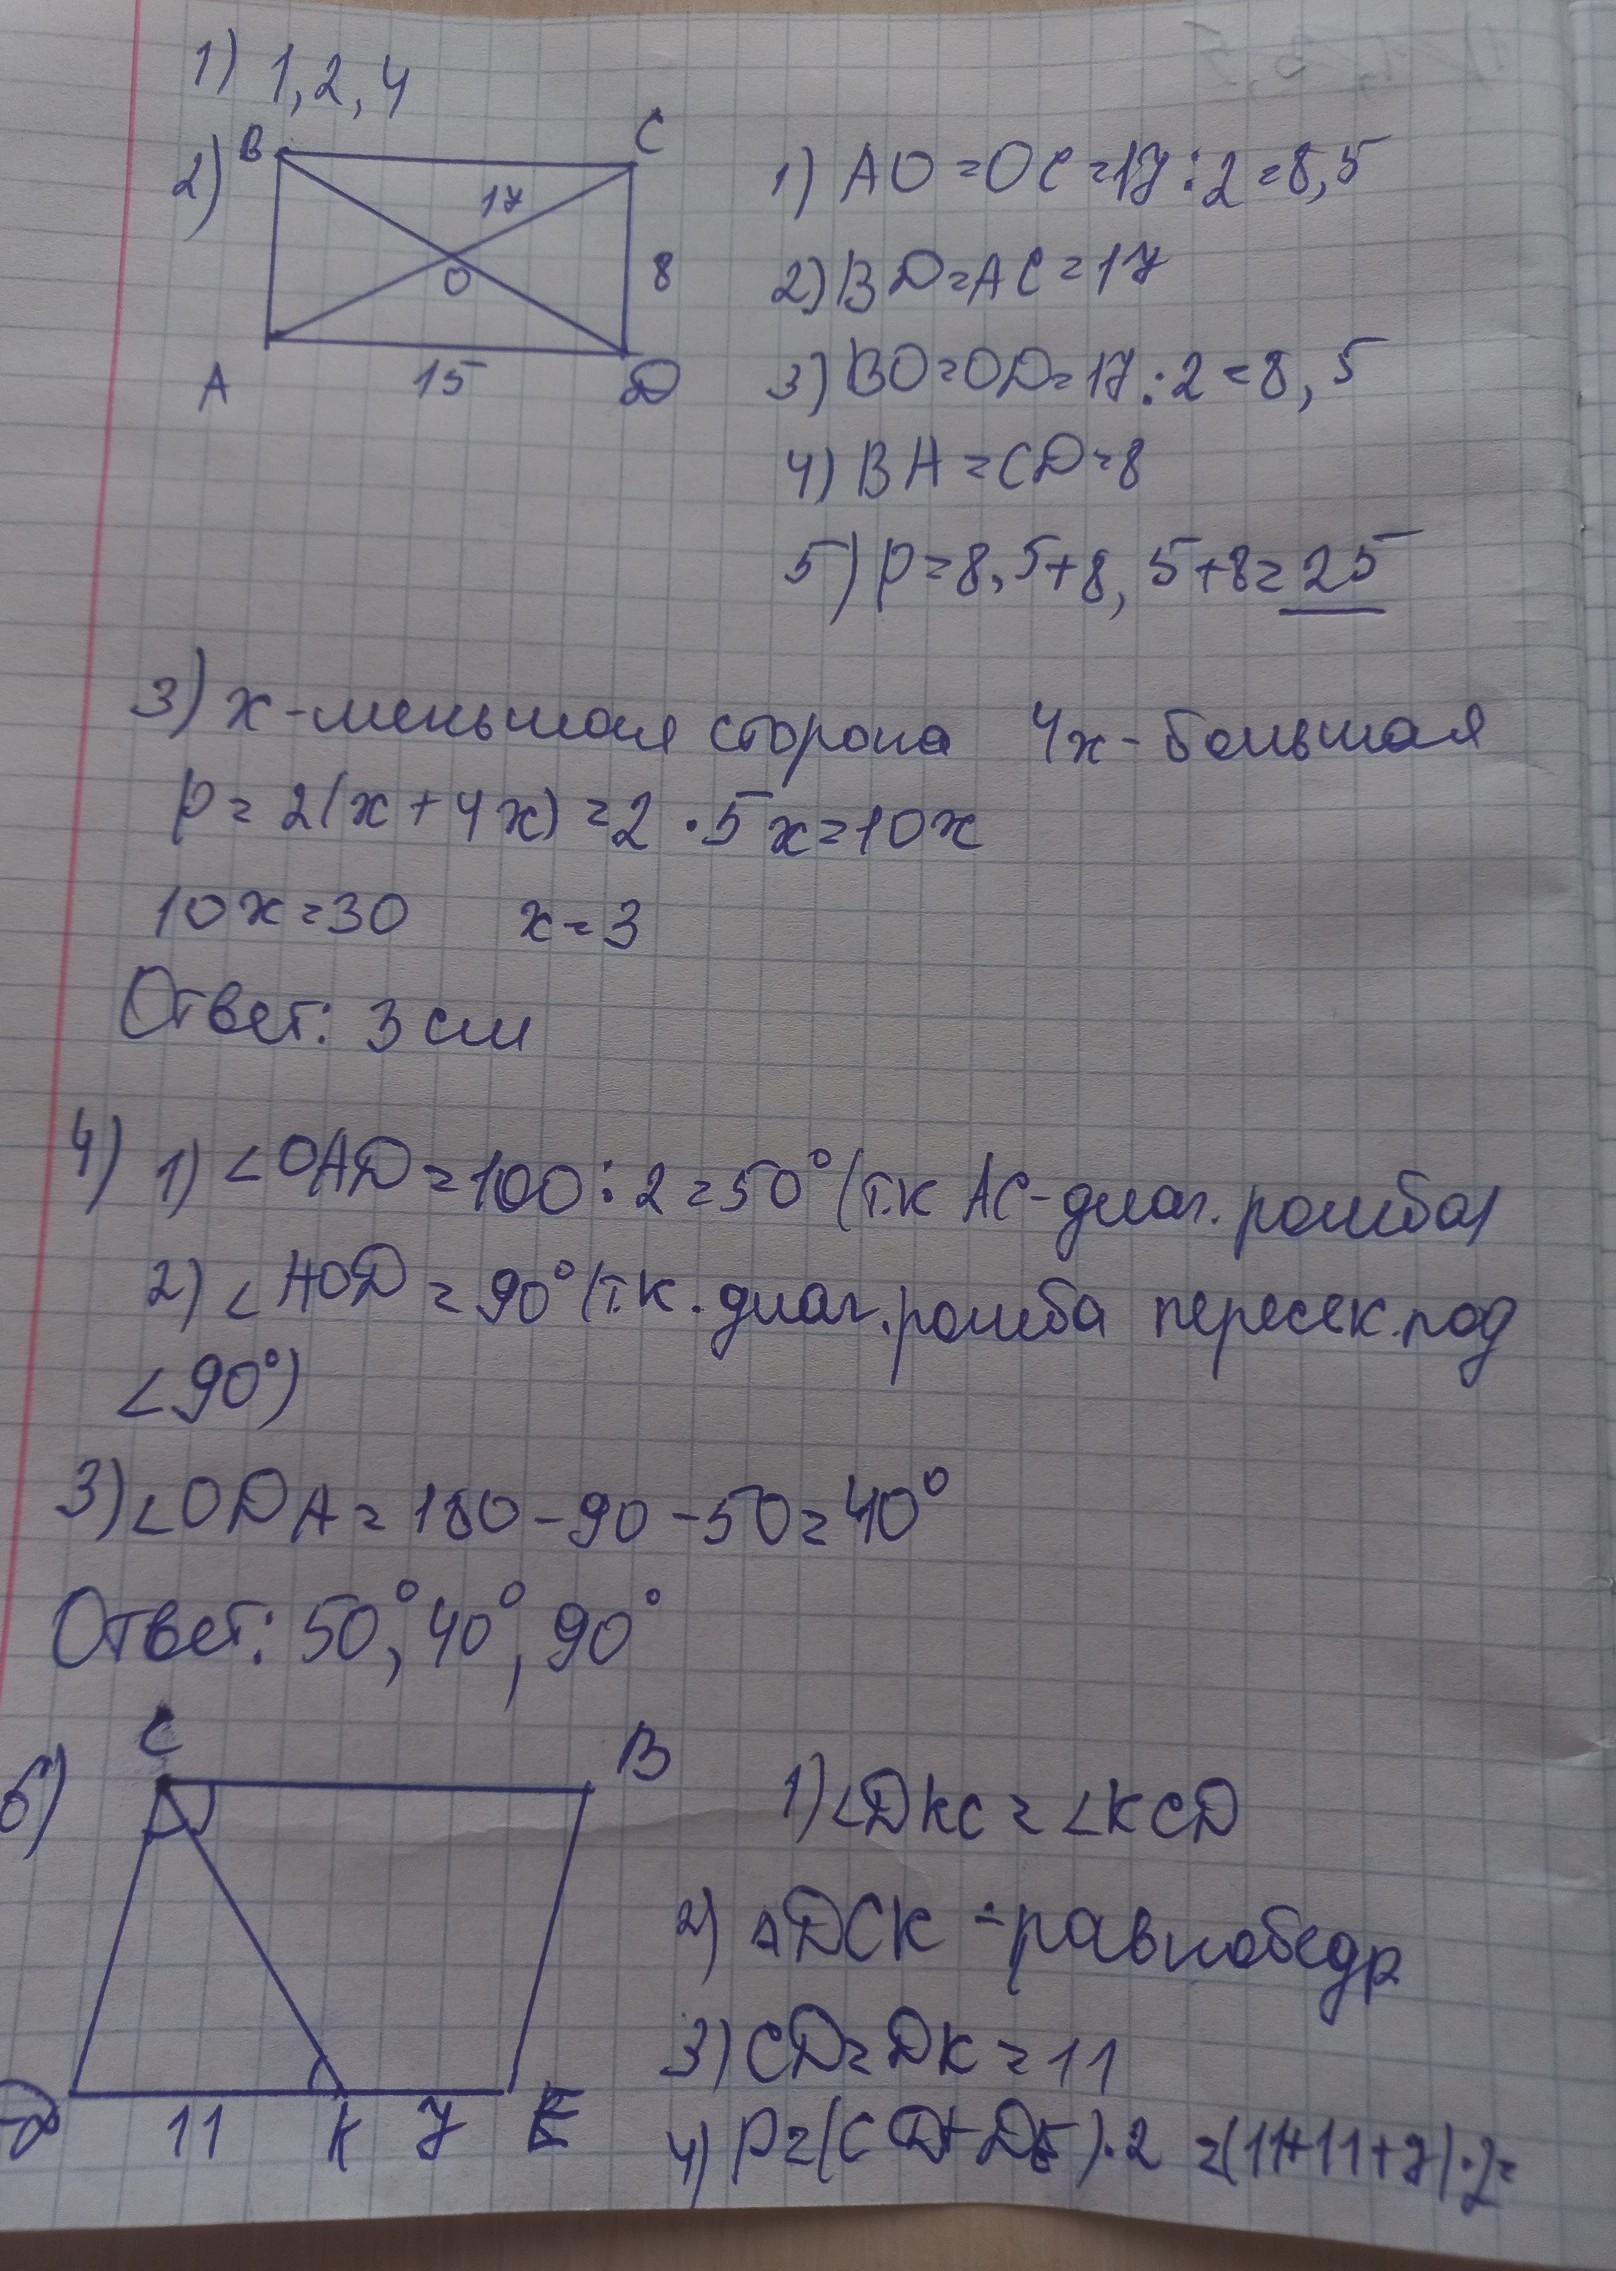 1) 1, 2, 4
2) B C
17
O
8
A 15 D
1) AO = OC = 17 : 2 = 8,5
2) BD = AC = 17
3) BO = OD = 17 : 2 = 8,5
4) BA = CD = 8
5) P = 8,5 + 8,5 + 8 = 25
3) x - меньшая сторона 4x - большая
P = 2(x + 4x) = 2 · 5x = 10x
10x = 30 x = 3
Ответ: 3 см
4) 1) ∠OAD = 100 : 2 = 50° (т.к AC - диаг. ромба)
2) ∠AOD = 90° (т.к. диаг. ромба пересек. под
∠90°)
3) ∠ODA = 180 - 90 - 50 = 40°
Ответ: 50°, 40°, 90°
6) C B
D 11 K 7 E
1) ∠DKC = ∠KCD
2) △DCK - равнобедр
3) CD = DK = 11
4) P = (CD + DE) · 2 = (11 + 11 + 7) · 2 =